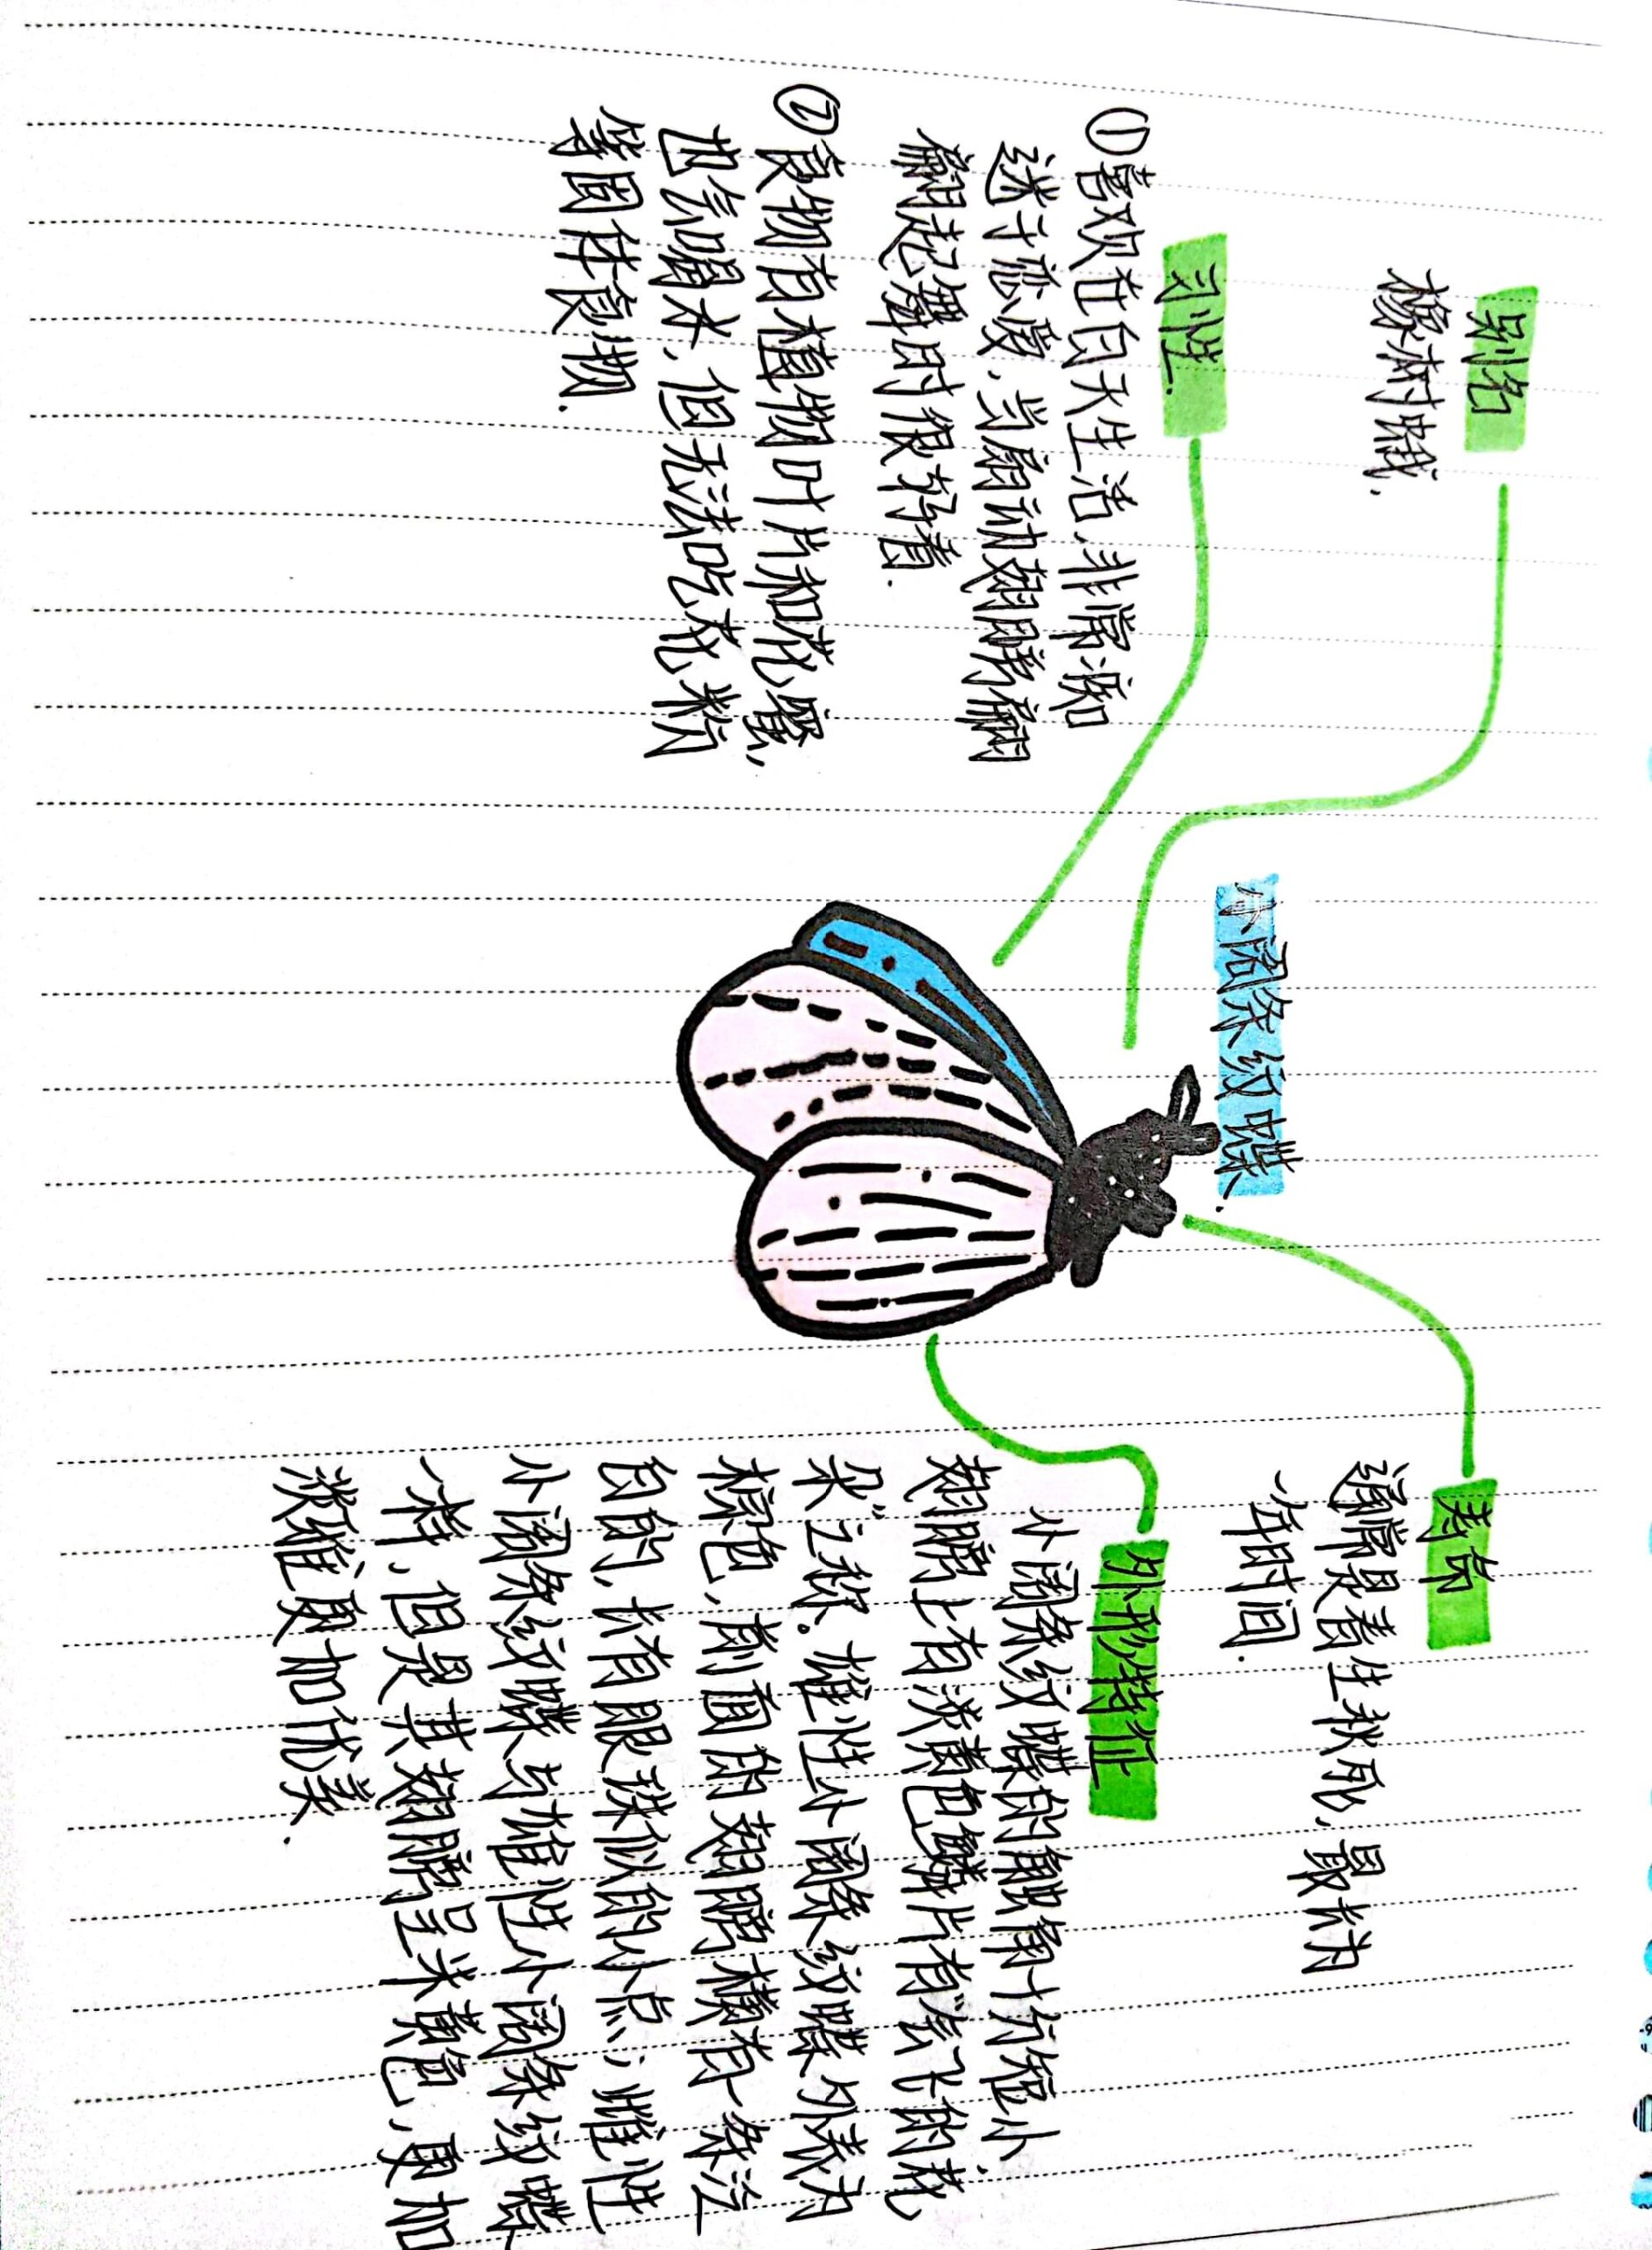 小阔条纹蝶.
别名
橡树蛾.
习性.
①喜欢在白天生活,非常温和
迷于恋爱,当扇动翅膀翩
翩起舞时很好看.
②食物有植物叶片和花蜜,
也会喝水,但无法吃花粉
等固体食物.
寿命
通常是春生秋死,最长为
一年时间.
外形特征
小阔条纹蝶的触角十分短小,
翅膀上有淡黄色鳞片有“会飞的花
朵”之称。雄性小阔条纹蝶外表为
棕色,前面的翅膀横有一条泛
白的,长有眼珠似的小点;雌性
小阔条纹蝶与雄性小阔条纹蝶
一样,但是其翅膀呈米黄色,更加
淡雅更加优美.